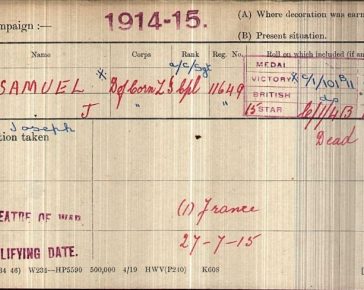 mpaign :— 1914-15. (A) Where decoration was earn
(B) Present situation.
Name Corps Rank Reg. No. Roll on which included (if an
a/c/Sgt
SAMUEL * D of Corn L I Cpl 11649 MEDAL
VICTORY *
J " " BRITISH do
15 STAR
Joseph Dead
tion taken
EATRE OF WAR (1) France
LIFYING DATE. 27-7-15
34 46) W234—HP5590 500,000 4/19 HWV(P240) K608